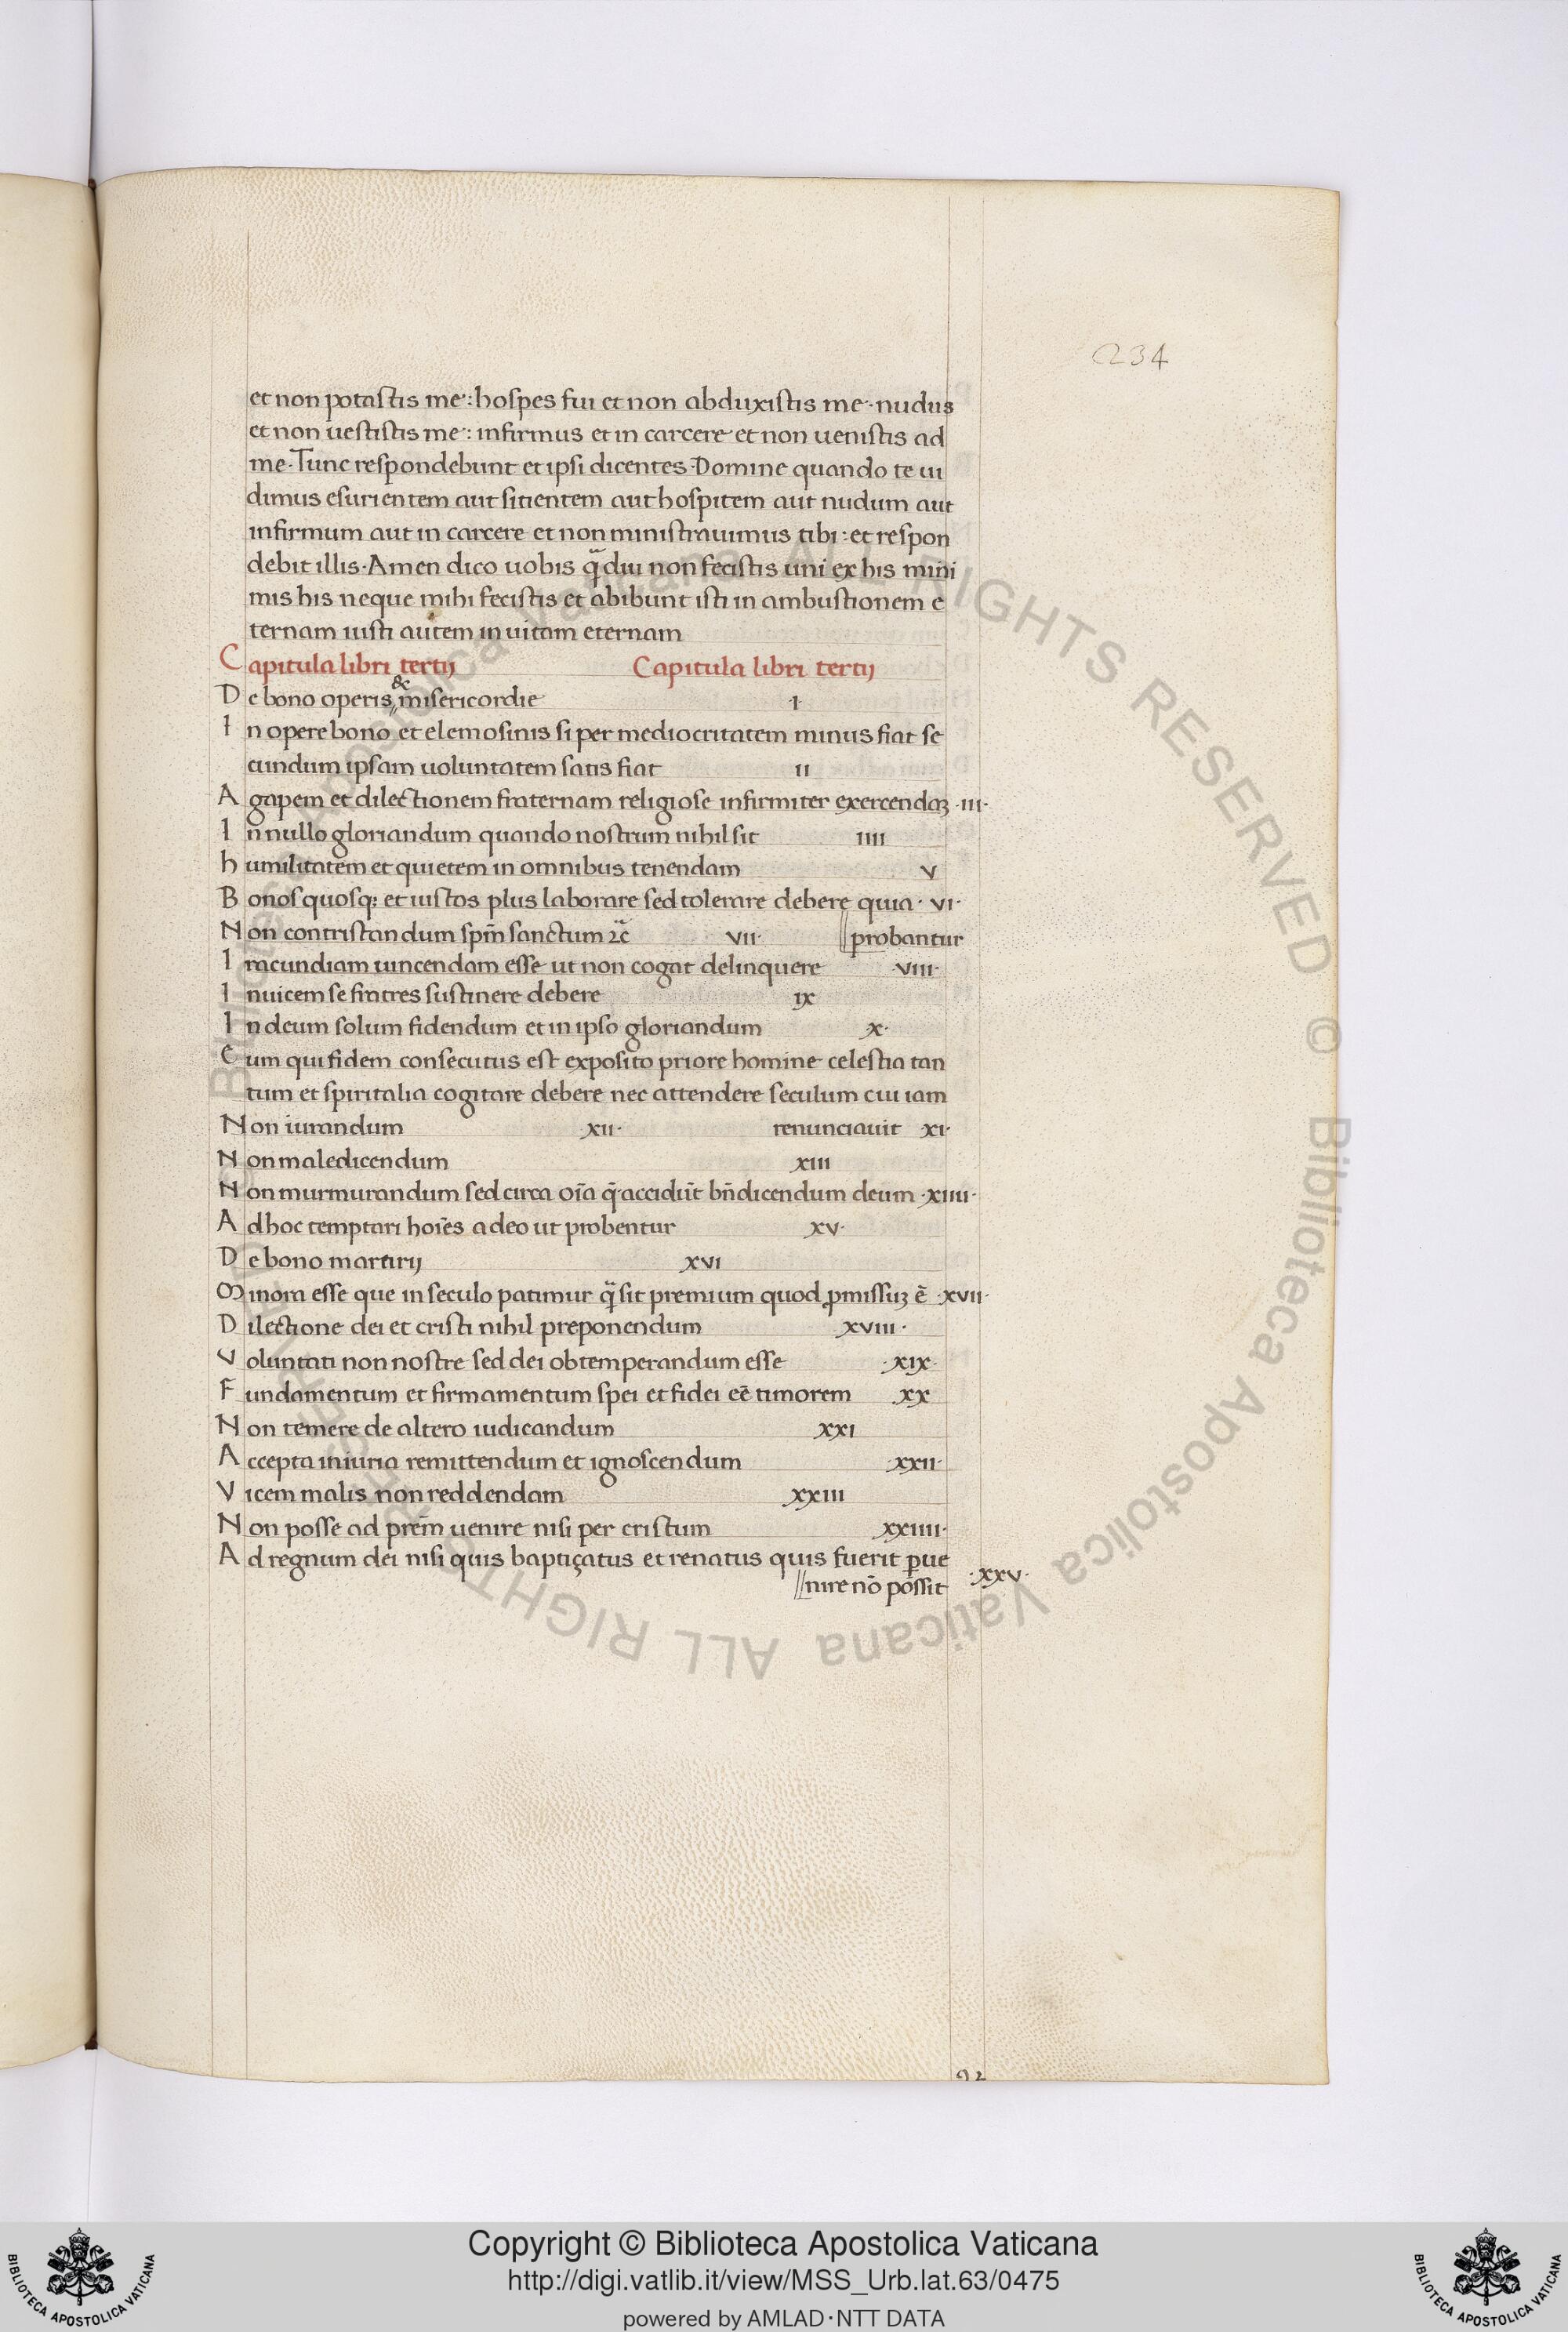 234
et non potastis me: hospes fui et non abduxistis me· nudus
et non uestistis me: infirmus et in carcere et non uenistis ad
me· Tunc respondebunt et ipsi dicentes· Domine quando te ui
dimus esurientem aut sitientem aut hospitem aut nudum aut
infirmum aut in carcere et non ministrauimus tibi: et respon
debit illis· Amen dico uobis qᷓdiu non fecistis uni ex his mini
mis his neque mihi fecistis et abibunt isti in ambustionem e
ternam iusti autem in uitam eternam
Capitula libri tertij Capitula libri tertij
De bono operis & misericordie ·I·
In opere bono et elemosinis si per mediocritatem minus fiat se
cundum ipsam uoluntatem satis fiat II
Agapem et dilectionem fraternam religiose infirmiter exercendaꝫ ·III·
In nullo gloriandum quando nostrum nihil sit IIII
humilitatem et quietem in omnibus tenendam V
Bonos quosqꝫ et iustos plus laborare sed tolerare debere quia· VI·
Non contristandum spm̄ sanctum ⁊c̄ VII· ‖probantur
Iracundiam uincendam esse ut non cogat delinquere VIII·
Inuicem se fratres sustinere debere IX
In deum solum fidendum et in ipso gloriandum X·
Eum qui fidem consecutus est exposito priore homine celestia tan
tum et spiritalia cogitare debere nec attendere seculum cui iam
Non iurandum XII· renunciauit XI·
Non maledicendum XIII
Non murmurandum sed circa oı̄a q̄ accidūt bn̄dicendum deum ·XIIII·
Ad hoc temptari hoīes a deo ut probentur XV·
De bono martirij XVI
Minora esse que in seculo patimur qᷓ sit premium quod ꝓmissuꝫ ē ·XVII·
Dilectione dei et cristi nihil preponendum XVIII·
Voluntati non nostre sed dei obtemperandum esse ·XIX·
Fundamentum et firmamentum spei et fidei eē timorem XX
Non temere de altero iudicandum XXI
Accepta iniuria remittendum et ignoscendum XXII·
Vicem malis non reddendam XXIII
Non posse ad prēm uenire nisi per cristum XXIIII·
Ad regnum dei nisi quis baptiçatus et renatus quis fuerit ꝑue
‖nire nō possit ·XXV·
Biblioteca Apostolica Vaticana ALL RIGHTS RESERVED © Biblioteca Apostolica Vaticana ALL RIGHTS RESERVED ©
Copyright © Biblioteca Apostolica Vaticana
http://digi.vatlib.it/view/MSS_Urb.lat.63/0475
powered by AMLAD·NTT DATA
BIBLIOTECA APOSTOLICA VATICANA
BIBLIOTECA APOSTOLICA VATICANA